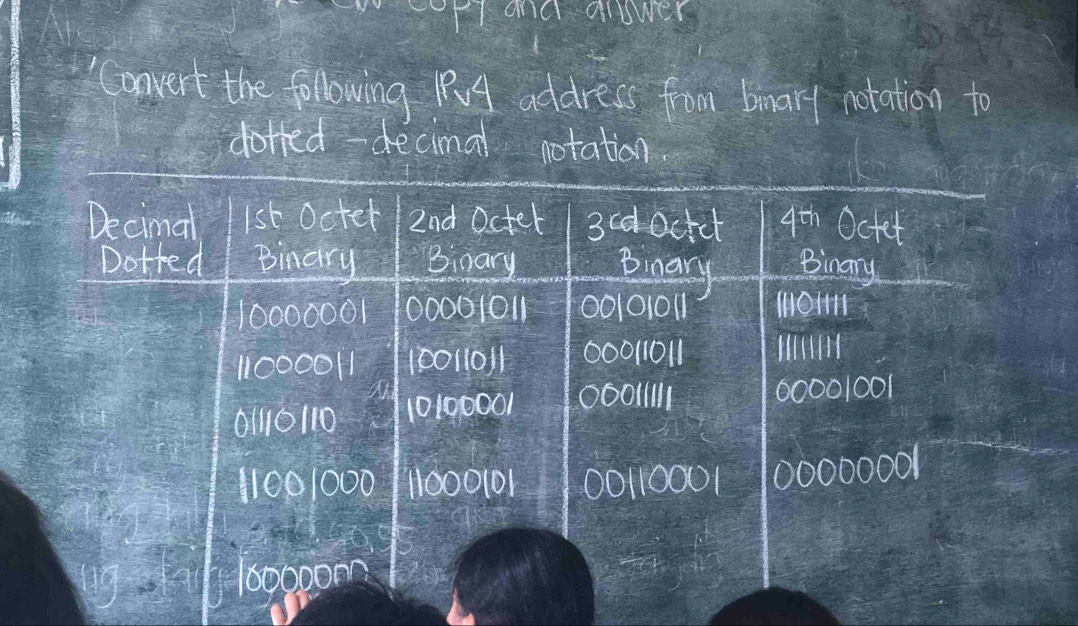 copy and answer
Convert the following IPv4 address from binary notation to
dotted - decimal notation.
Decimal Dotted | 1st Octet Binary | 2nd Octet Binary | 3rd Octet Binary | 4th Octet Binary
10000001 | 00001011 | 00101011 | 11101111
11000011 | 10011011 | 00011011 | 11111111
01110110 | 10100001 | 00011111 | 00001001
11001000 | 11000101 | 00110001 | 00000001
10000000